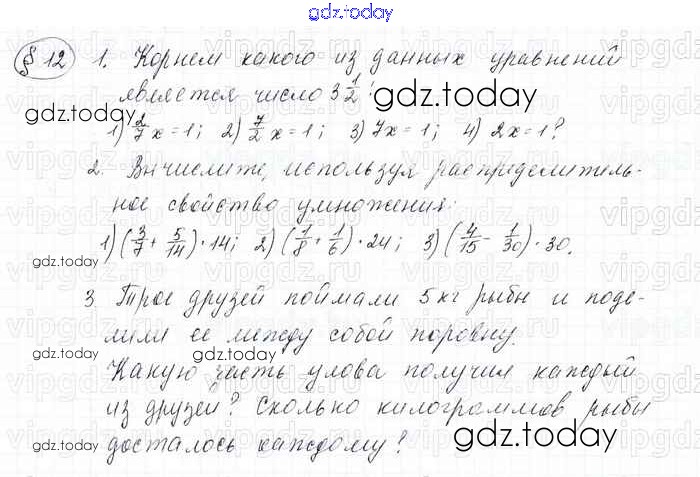 gdz.today
§ 12 1. Корнем какого из данных уравнений
является число 3 1/2:
gdz.today
1) 2/7 x = 1; 2) 7/2 x = 1; 3) 7x = 1; 4) 2x = 1?
2. Вычислите, используя распределитель-
ное свойство умножения:
gdz.today
1) (3/7 + 5/14) · 14; 2) (1/8 + 1/6) · 24; 3) (4/15 - 1/30) · 30.
gdz.today
3. Трое друзей поймали 5 кг рыбы и поде-
лили её между собой поровну.
gdz.today
Какую часть улова получил каждый
из друзей? Сколько килограммов рыбы
gdz.today
досталось каждому?
gdz.today